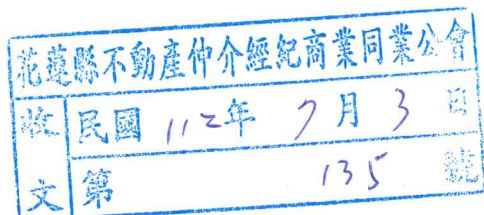 花蓮縣不動產仲介經紀商業同業公會
收文
民國 112年 7月 3日
第 135 號